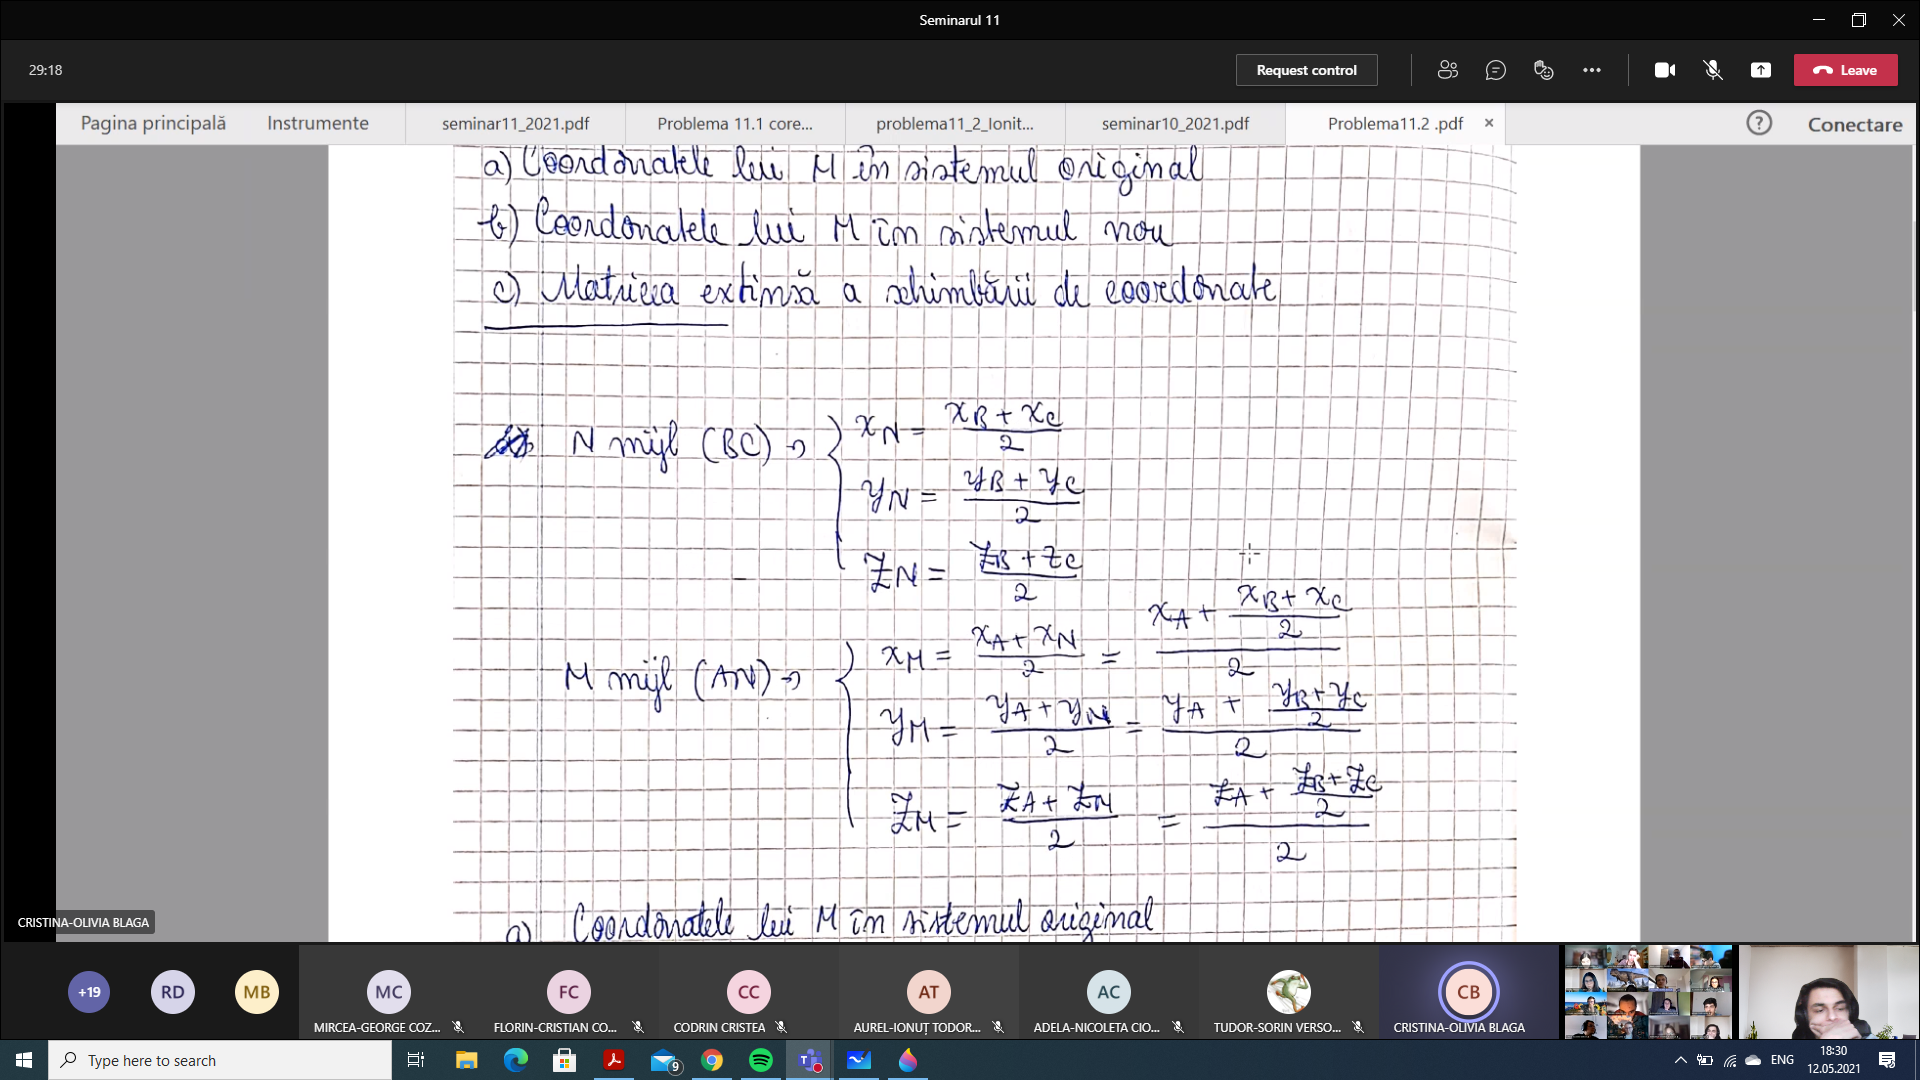 Seminarul 11
29:18
Request control
Leave
Pagina principală Instrumente seminar11_2021.pdf Problema 11.1 core... problema11_2_Ionit... seminar10_2021.pdf Problema11.2 .pdf × ? Conectare
a) Coordonatele lui M în sistemul original
b) Coordonatele lui M în sistemul nou
c) Matricea extinsă a schimbării de coordonate
N mijl (BC) → { x_N = (x_B + x_C)/2
y_N = (y_B + y_C)/2
z_N = (z_B + z_C)/2
M mijl (AN) → { x_M = (x_A + x_N)/2 = (x_A + (x_B + x_C)/2)/2
y_M = (y_A + y_N)/2 = (y_A + (y_B + y_C)/2)/2
z_M = (z_A + z_N)/2 = (z_A + (z_B + z_C)/2)/2
a) Coordonatele lui M în sistemul original
CRISTINA-OLIVIA BLAGA
+19 RD MB MC FC CC AT AC CB
MIRCEA-GEORGE COZ... FLORIN-CRISTIAN CO... CODRIN CRISTEA AUREL-IONUȚ TODOR... ADELA-NICOLETA CIO... TUDOR-SORIN VERSO... CRISTINA-OLIVIA BLAGA
Type here to search
9
ENG
18:30
12.05.2021